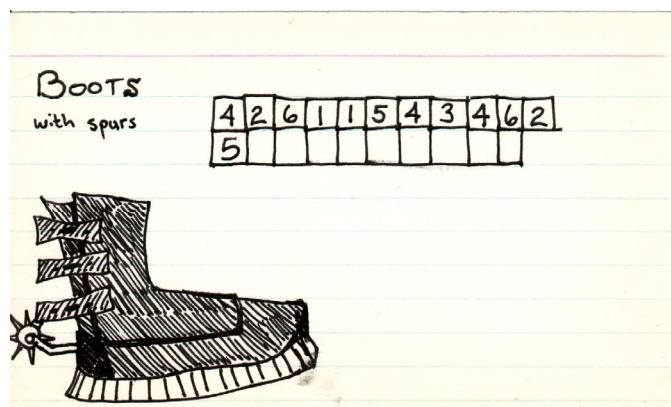 BOOTS
with spurs
4 2 6 1 1 5 4 3 4 6 2
5